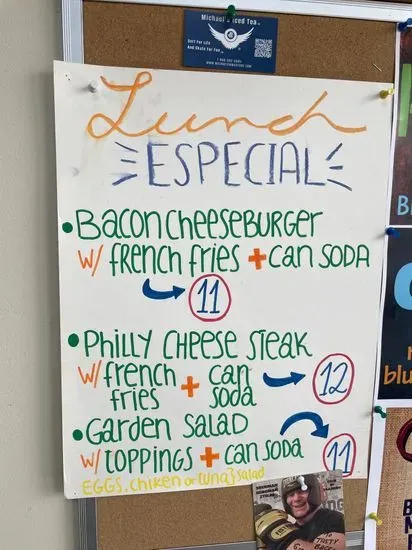 Michael's Iced Tea
Lunch
ESPECIAL
• BACON CHEESEBURGER
W/ FRENCH FRIES + CAN SODA
11
• PHILLY CHEESE STEAK
W/ french fries + can soda
12
• GARDEN SALAD
W/ TOPPINGS + CAN SODA
11
EGGS, CHIKEN or tuna salad